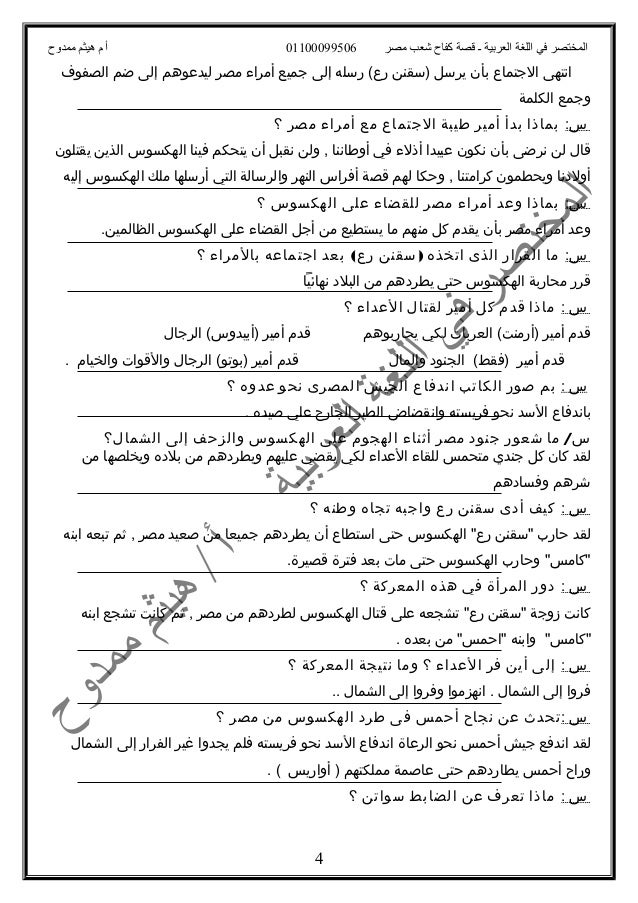 المختصر في اللغة العربية ـ قصة كفاح شعب مصر 01100099506 أ م هيثم ممدوح
انتهى الاجتماع بأن يرسل (سقنن رع) رسله إلى جميع أمراء مصر ليدعوهم إلى ضم الصفوف
وجمع الكلمة
س: بماذا بدأ أمير طيبة الاجتماع مع أمراء مصر ؟
قال لن نرضى بأن نكون عبيدا أذلاء في أوطاننا , ولن نقبل أن يتحكم فينا الهكسوس الذين يقتلون
أولادنا ويحطمون كرامتنا , وحكا لهم قصة أفراس النهر والرسالة التي أرسلها ملك الهكسوس إليه
س: بماذا وعد أمراء مصر للقضاء على الهكسوس ؟
وعد أمراء مصر بأن يقدم كل منهم ما يستطيع من أجل القضاء على الهكسوس الظالمين.
س: ما القرار الذى اتخذه (سقنن رع) بعد اجتماعه بالأمراء ؟
قرر محاربة الهكسوس حتى يطردهم من البلاد نهائيا
س : ماذا قدم كل أمير لقتال الأعداء ؟
قدم أمير (أرمنت) العربات لكي يحاربوهم قدم أمير (أبيدوس) الرجال
قدم أمير (فقط) الجنود والمال قدم أمير (بوتو) الرجال والأقوات والخيام .
س : بم صور الكاتب اندفاع الجيش المصرى نحو عدوه ؟
باندفاع الأسد نحو فريسته وانقضاض الطير الجارح على صيده .
س/ ما شعور جنود مصر أثناء الهجوم على الهكسوس والزحف إلى الشمال؟
لقد كان كل جندي متحمس للقاء الأعداء لكي يقضى عليهم ويطردهم من بلاده ويخلصها من
شرهم وفسادهم
س : كيف أدى سقنن رع واجبه تجاه وطنه ؟
لقد حارب "سقنن رع" الهكسوس حتى استطاع أن يطردهم جميعا من صعيد مصر , ثم تبعه ابنه
"كامس" وحارب الهكسوس حتى مات بعد فترة قصيرة.
س : دور المرأة في هذه المعركة ؟
كانت زوجة "سقنن رع" تشجعه على قتال الهكسوس لطردهم من مصر , ثم كانت تشجع ابنه
"كامس" وابنه "احمس" من بعده .
س : إلى أين فر الأعداء ؟ وما نتيجة المعركة ؟
فروا إلى الشمال . انهزموا وفروا إلى الشمال ..
س :تحدث عن نجاح أحمس فى طرد الهكسوس من مصر ؟
لقد اندفع جيش أحمس نحو الرعاة اندفاع الأسد نحو فريسته فلم يجدوا غير الفرار إلى الشمال
وراح أحمس يطاردهم حتى عاصمة مملكتهم ( أواريس ) .
س : ماذا تعرف عن الضابط سواتن ؟
4
المختصر في اللغة العربية
أ/ هيثم ممدوح